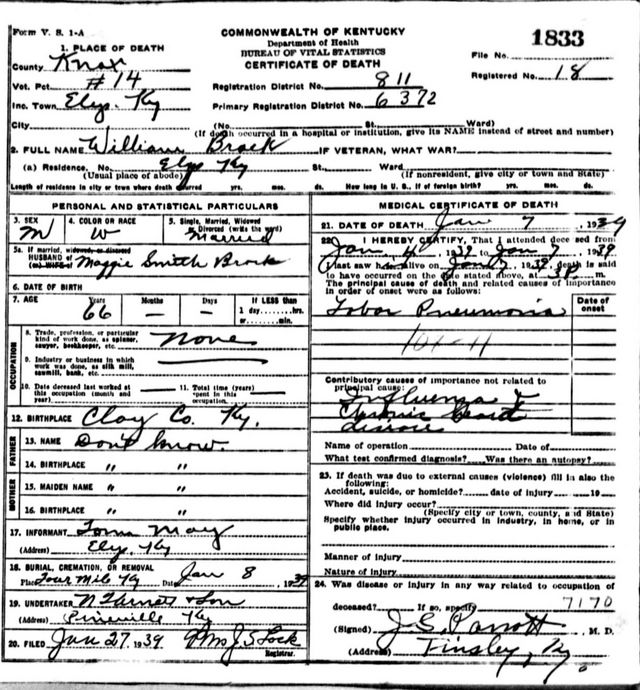 Form V. S. 1-A
COMMONWEALTH OF KENTUCKY
Department of Health
BUREAU OF VITAL STATISTICS
CERTIFICATE OF DEATH
1833
File No.
Registered No. 18
1. PLACE OF DEATH
County Knox
Vot. Pct. #14
Inc. Town Elys, Ky
Registration District No. 811
Primary Registration District No. 6372
City (No. St. Ward)
(If death occurred in a hospital or institution, give its NAME instead of street and number)
2. FULL NAME William Brock IF VETERAN, WHAT WAR?
(a) Residence, No. Elys Ky St. Ward
(Usual place of abode) (If nonresident, give city or town and State)
Length of residence in city or town where death occurred yrs. mos. ds. How long in U. S., if of foreign birth? yrs. mos. ds.
PERSONAL AND STATISTICAL PARTICULARS
3. SEX M
4. COLOR OR RACE W
5. Single, Married, Widowed
Divorced (write the word)
Married
5a. If married, widowed, or divorced
HUSBAND of
(or) WIFE of Maggie Smith Brock
6. DATE OF BIRTH
7. AGE Years Months Days IF LESS than
66 — — 1 day hrs.
or min.
OCCUPATION
8. Trade, profession, or particular
kind of work done, as spinner,
sawyer, bookkeeper, etc. None
9. Industry or business in which
work was done, as silk mill,
sawmill, bank, etc.
10. Date deceased last worked at
this occupation (month and
year)
11. Total time (years)
spent in this
occupation
12. BIRTHPLACE Clay Co. Ky.
FATHER
13. NAME Don't know.
14. BIRTHPLACE " "
MOTHER
15. MAIDEN NAME " "
16. BIRTHPLACE " "
17. INFORMANT May
(Address) Elys, Ky
18. BURIAL, CREMATION, OR REMOVAL
Place Four Mile Ky Date Jan 8, 1939
19. UNDERTAKER & Son
(Address) Pineville Ky
20. FILED Jan 27, 1939 Mrs J. S. Lock
Registrar.
MEDICAL CERTIFICATE OF DEATH
21. DATE OF DEATH Jan 7, 1939
22. I HEREBY CERTIFY, That I attended deceased from
Jan 4, 1939 to Jan 7, 1939
I last saw h alive on Jan 1939, death is said
to have occurred on the date stated above, at m.
The principal cause of death and related causes of importance
in order of onset were as follows:
Date of
onset
Lobar Pneumonia
Contributory causes of importance not related to
principal cause:
Influenza &
Chronic heart
disease
Name of operation Date of
What test confirmed diagnosis? Was there an autopsy?
23. If death was due to external causes (violence) fill in also the
following:
Accident, suicide, or homicide? date of injury 19
Where did injury occur?
(Specify city or town, county, and State)
Specify whether injury occurred in industry, in home, or in
public place.
Manner of injury
Nature of injury
24. Was disease or injury in any way related to occupation of
deceased? If so, specify 7170
(Signed) J. S. Parrott M. D.
(Address) Tinsley, Ky.